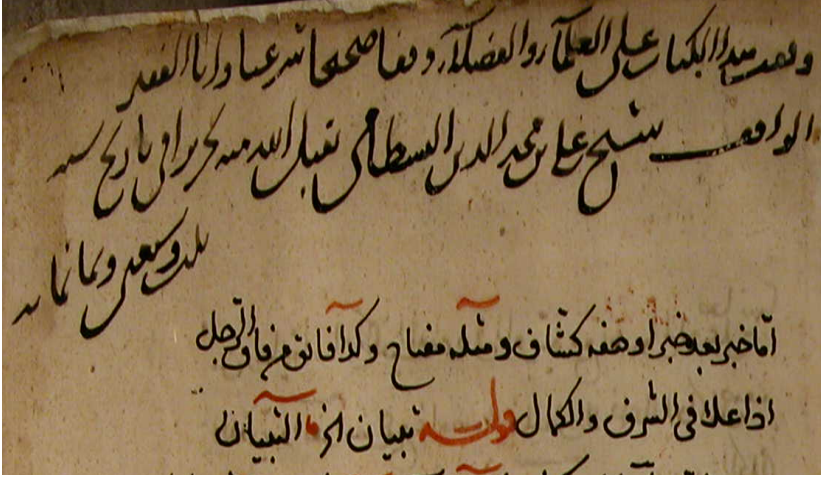 وقفت هذا الكتاب على العلماء والفضلاء وقفا صحيحا شرعيا وانا الفقير
الواقف شيخ علي بن مجد الدين البسطامي تقبل الله منه تحريرا في تاريخ سنه
ثلث وسبعين وثمانمايه
اما خبر بعد خبر او صفه كشاف ومثله مفتاح وكذا فائق من فاق الرجل
اذا علا في الشرف والكمال قوله تبيان الخ التبيان